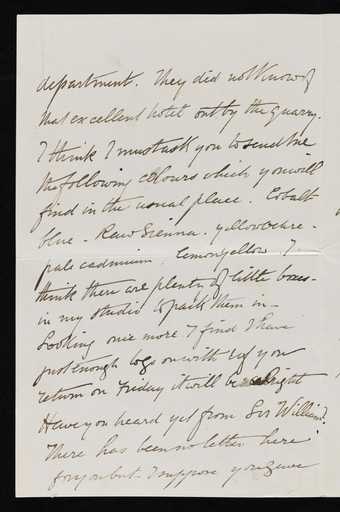 department. They did not know of
that excellent hotel out by the quarry.
I think I must ask you to send me
the following colours which you will
find in the usual place. Cobalt
blue - Raw Sienna. yellow ocre.
pale cadmium, lemon yellow. I
think there are plenty of little boxes
in my studio to pack them in -
Looking once more I find I have
just enough to go on with & if you
return on Friday it will be all right
Have you heard yet from Sir William?
There has been no letter here
for you but - I suppose you gave